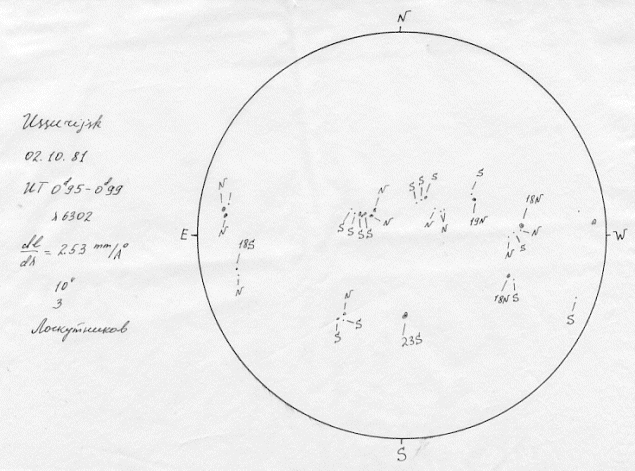 N
Ussurijsk
02.10.81
UT 0ᵈ95-0ᵈ99
λ6302
dl/dλ = 2.53 mm/A°
10°
3
Лоскутников
E
W
S
N
N
18S
N
S S S S
N
N
S S S
N N
S
19N
18N
N
N S
18N S
S
N
S S
23S